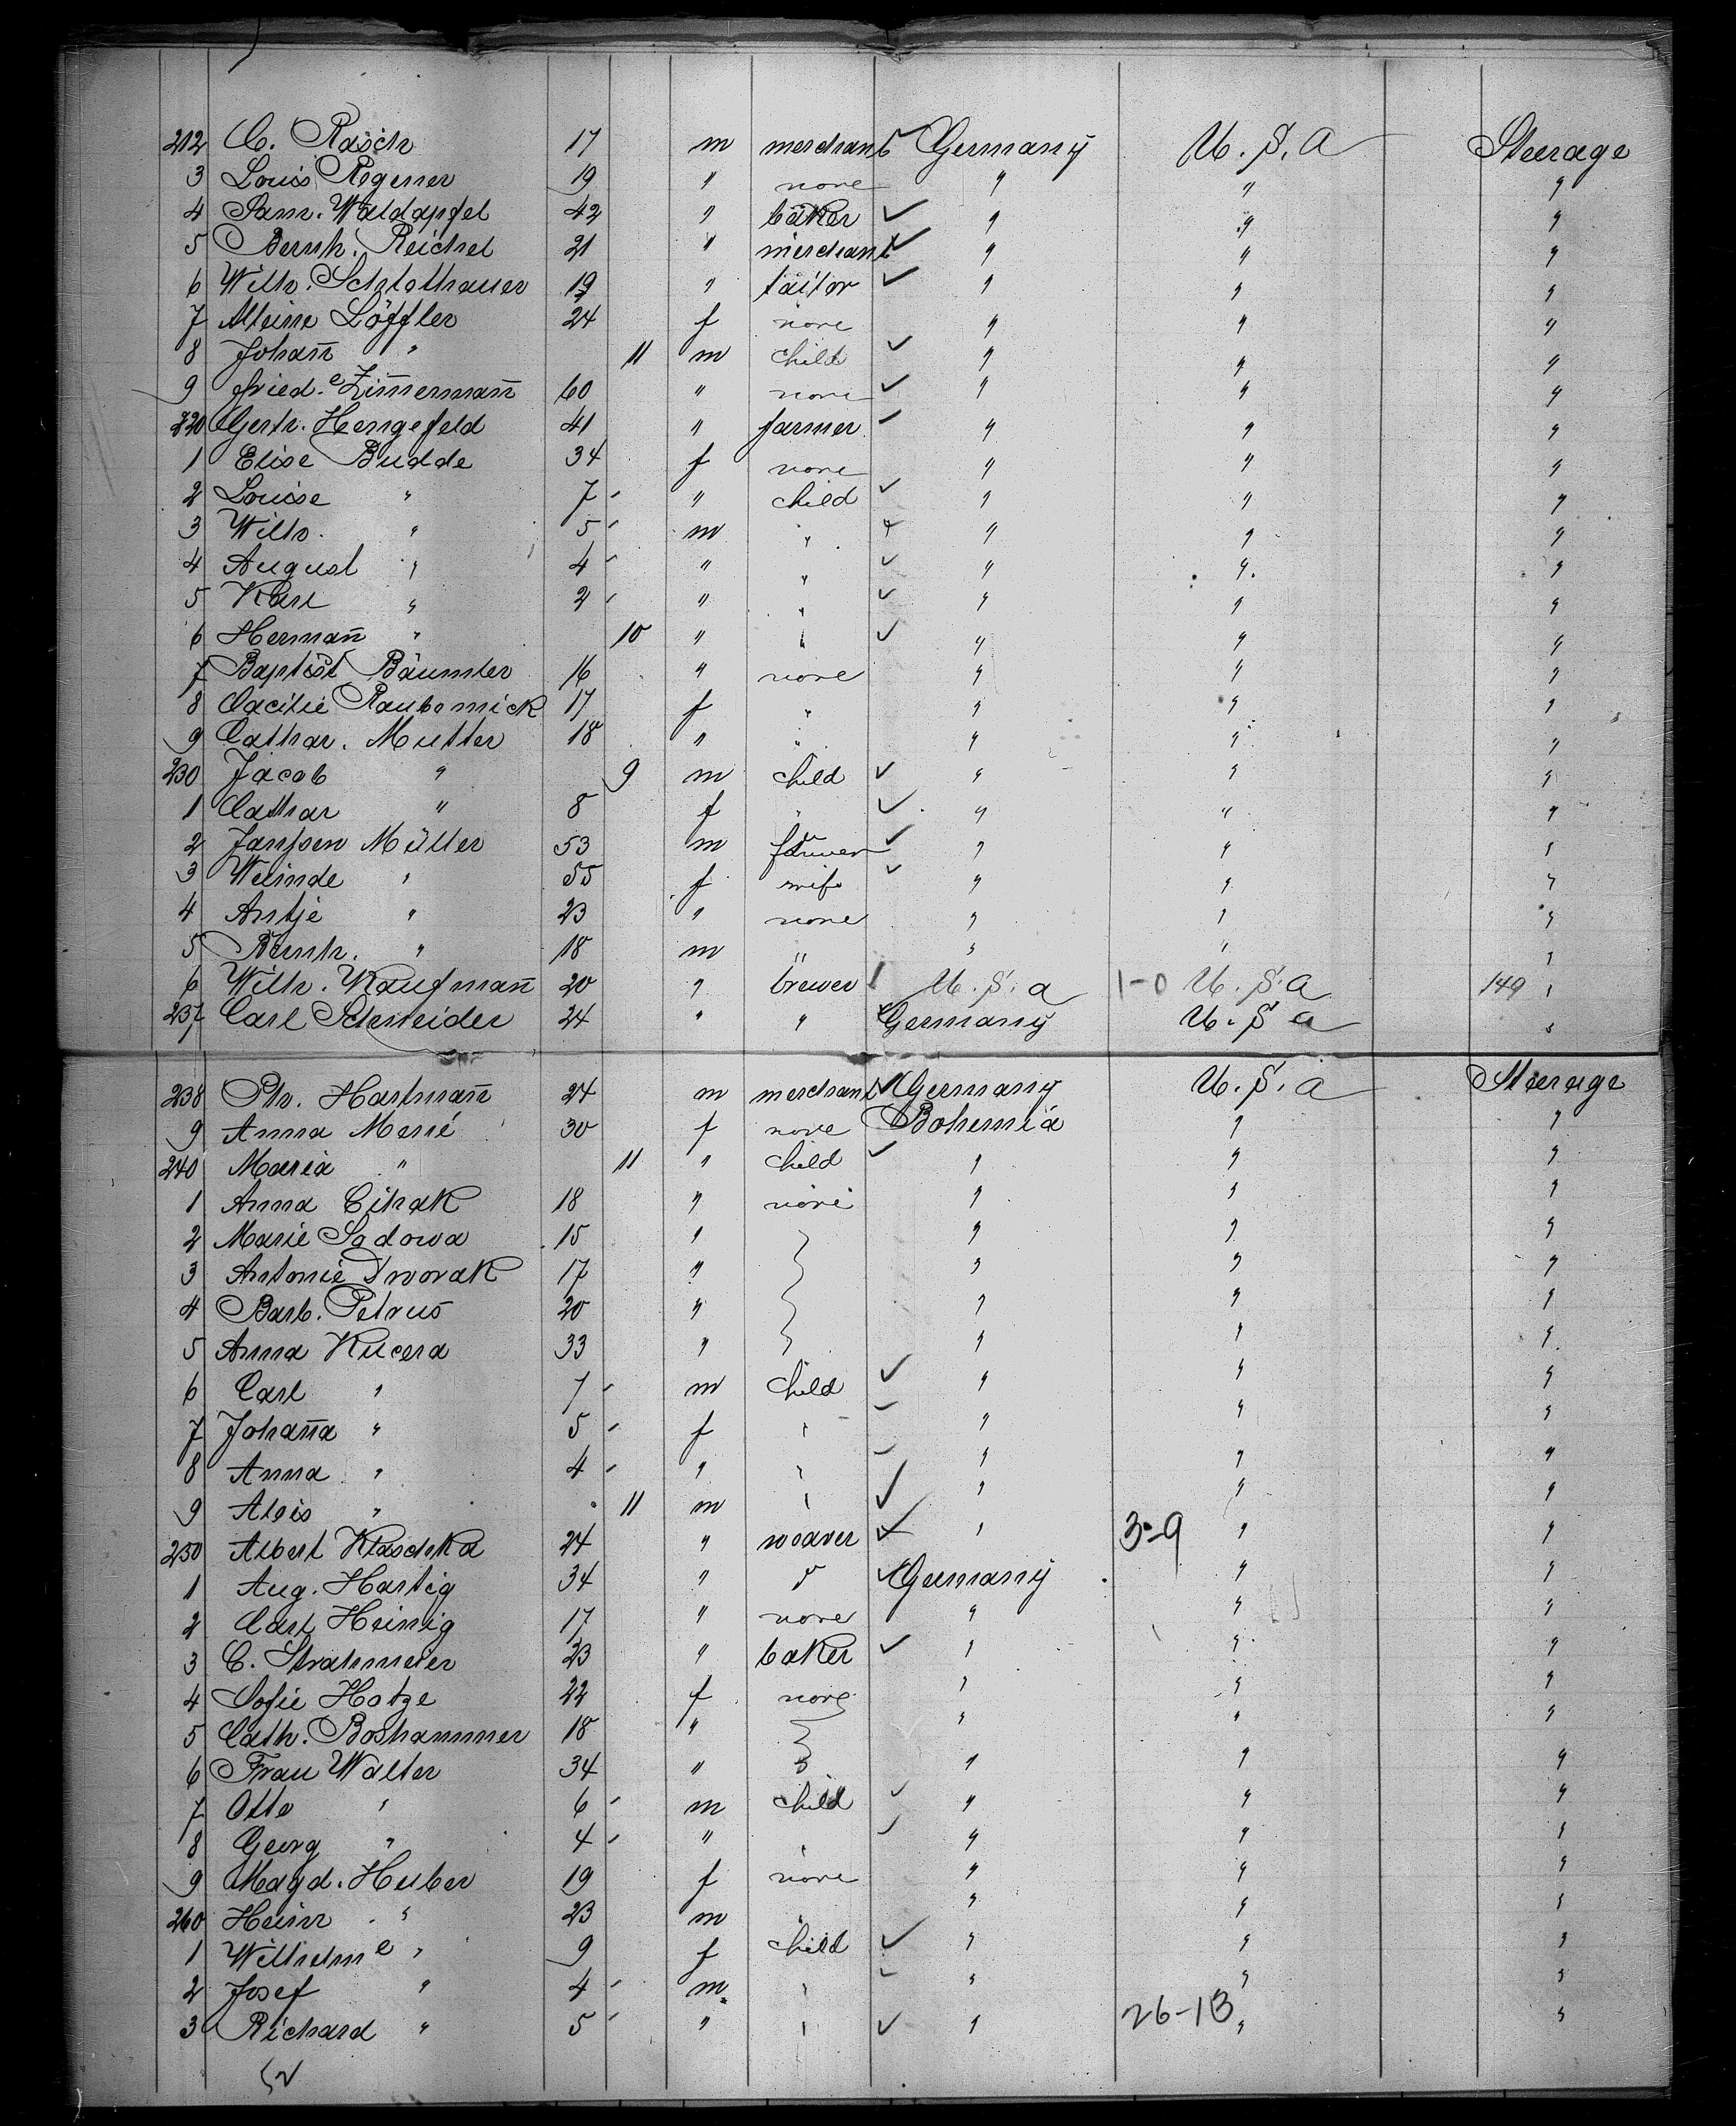 212 C. Rasch 17 m merchant Germany U.S.A Steerage
3 Louis Regener 19 " none " " "
4 Sam. Waldapfel 42 " baker " " "
5 Bernh. Reichel 21 " merchant " " "
6 Wilh. Schlothauer 19 " tailor " " "
7 Löffler 24 f none " " "
8 Johan̄ " 11 m child " " "
9 Fried. Zim̄erman̄ 60 " none " " "
220 Gerh. Hengefeld 41 " farmer " " "
1 Elise Budde 34 f none " " "
2 Louise " 7 " child " " "
3 Wilh. " 5 m " " " "
4 August " 4 " " " " "
5 Karl " 2 " " " " "
6 Herman̄ " 10 " " " " "
7 Baptist Bäumler 16 " none " " "
8 Cacilie 17 f " " " "
9 Cathar. Mutter 18 " " " " "
230 Jacob " 9 m child " " "
1 Cathar " 8 f " " " "
2 Janssen Müller 53 m farmer " " "
3 " 55 f wife " " "
4 Antje " 23 " none " " "
5 Bernh. " 18 m " " " "
6 Wilh. Kaufman̄ 20 " brewer U.S.a 1-0 U.S.A 149 "
237 Carl Schneider 24 " " Germany U.S a "
238 Ph. Hartman̄ 24 m merchant Germany U.S.a Steerage
9 Anna Merié 30 f none Bohemia " "
240 Maria " 11 " child " " "
1 Anna Cihak 18 " none " " "
2 Marie Sadowa 15 " " " "
3 Antonie Dworak 17 " " " "
4 Barb. Petrus 20 " " " "
5 Anna Kucera 33 " " " "
6 Carl " 7 m child " " "
7 Johan̄a " 5 f " " " "
8 Anna " 4 " " " " "
9 Alois " 11 m " " " "
250 Albert Klaschka 24 " weaver " 3-9 " "
1 Aug. Hartig 34 " " Germany " "
2 Carl Heinig 17 " none " " "
3 C. Strahmeier 23 " baker " " "
4 Sofie Hotze 22 f none " " "
5 Cath. Boshammer 18 " " " "
6 Frau Walter 34 " " " " "
7 Otto " 6 m child " " "
8 Georg " 4 " " " " "
9 Magd. Huber 19 f none " " "
260 Heinr " 23 m " " " "
1 Wilhelme " 9 f child " " "
2 Josef " 4 m " " " "
3 Richard " 5 " " " 26-13 " "